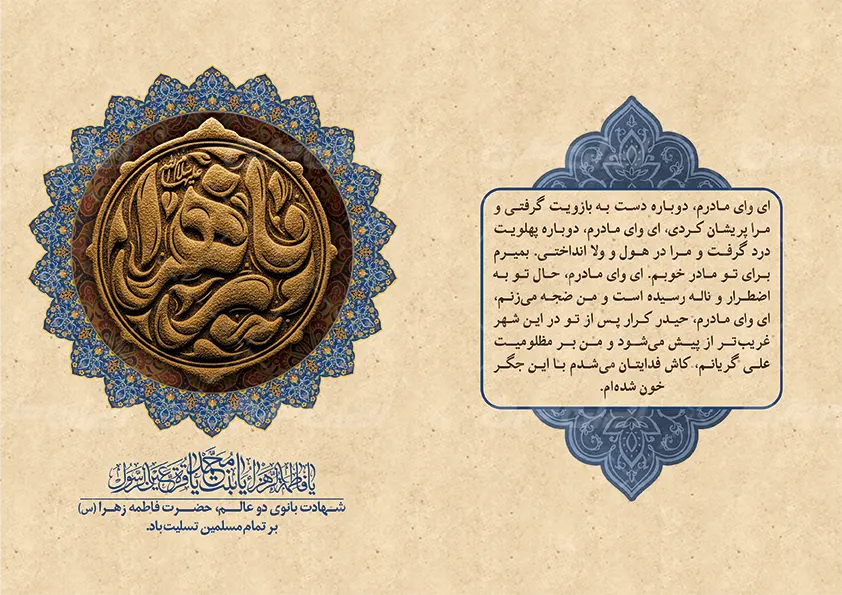 ای وای مادرم، دوباره دست به بازویت گرفتی و
مرا پریشان کردی، ای وای مادرم، دوباره پهلویت
درد گرفت و مرا در هول و ولا انداختی. بمیرم
برای تو مادر خوبم. ای وای مادرم، حال تو به
اضطرار و ناله رسیده است و من ضجه می‌زنم،
ای وای مادرم، حیدر کرار پس از تو در این شهر
غریب‌تر از پیش می‌شود و من بر مظلومیت
علی گریانم، کاش فدایتان می‌شدم با این جگر
خون شده‌ام.
یا فاطمة الزهرا یا بنت محمد یا قرة عین الرسول
شهادت بانوی دو عالم، حضرت فاطمه زهرا (س)
بر تمام مسلمین تسلیت باد.